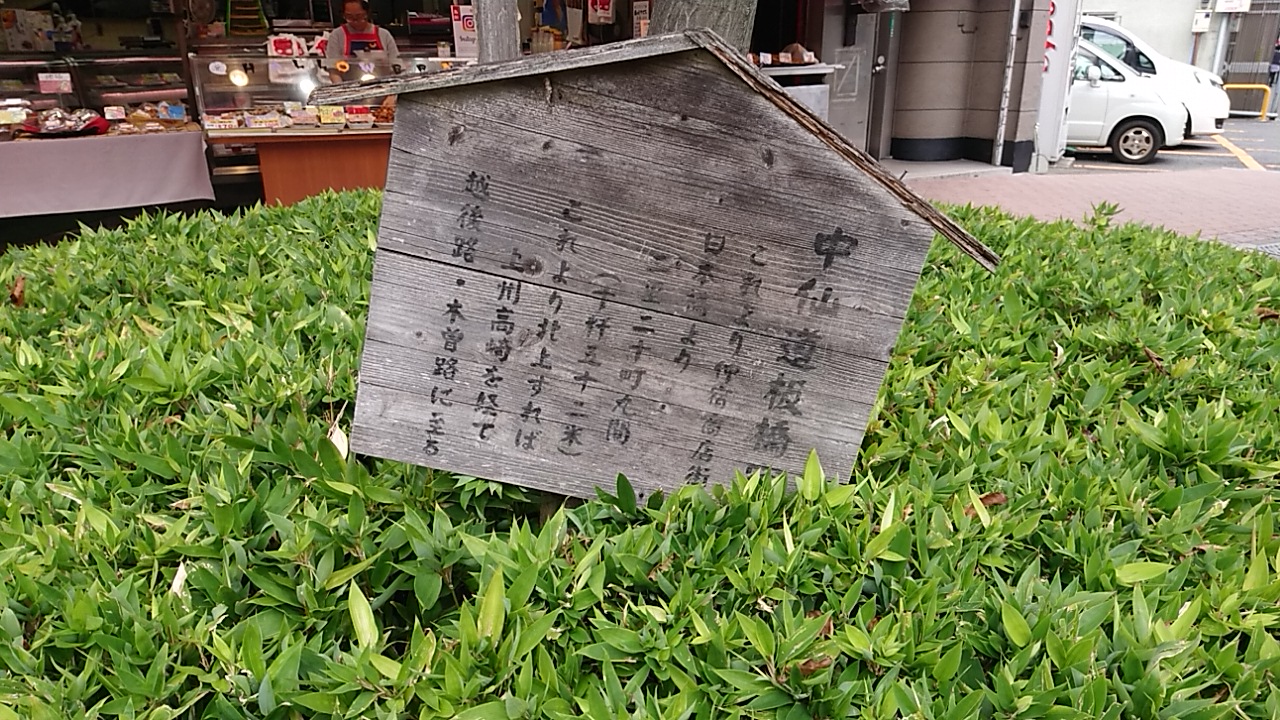 中仙道板橋
これより仲宿商店街
日本橋より
二里二十町九間
(十粁三十二米)
これより北上すれば
上州高崎を経て
越後路・木曽路に至る